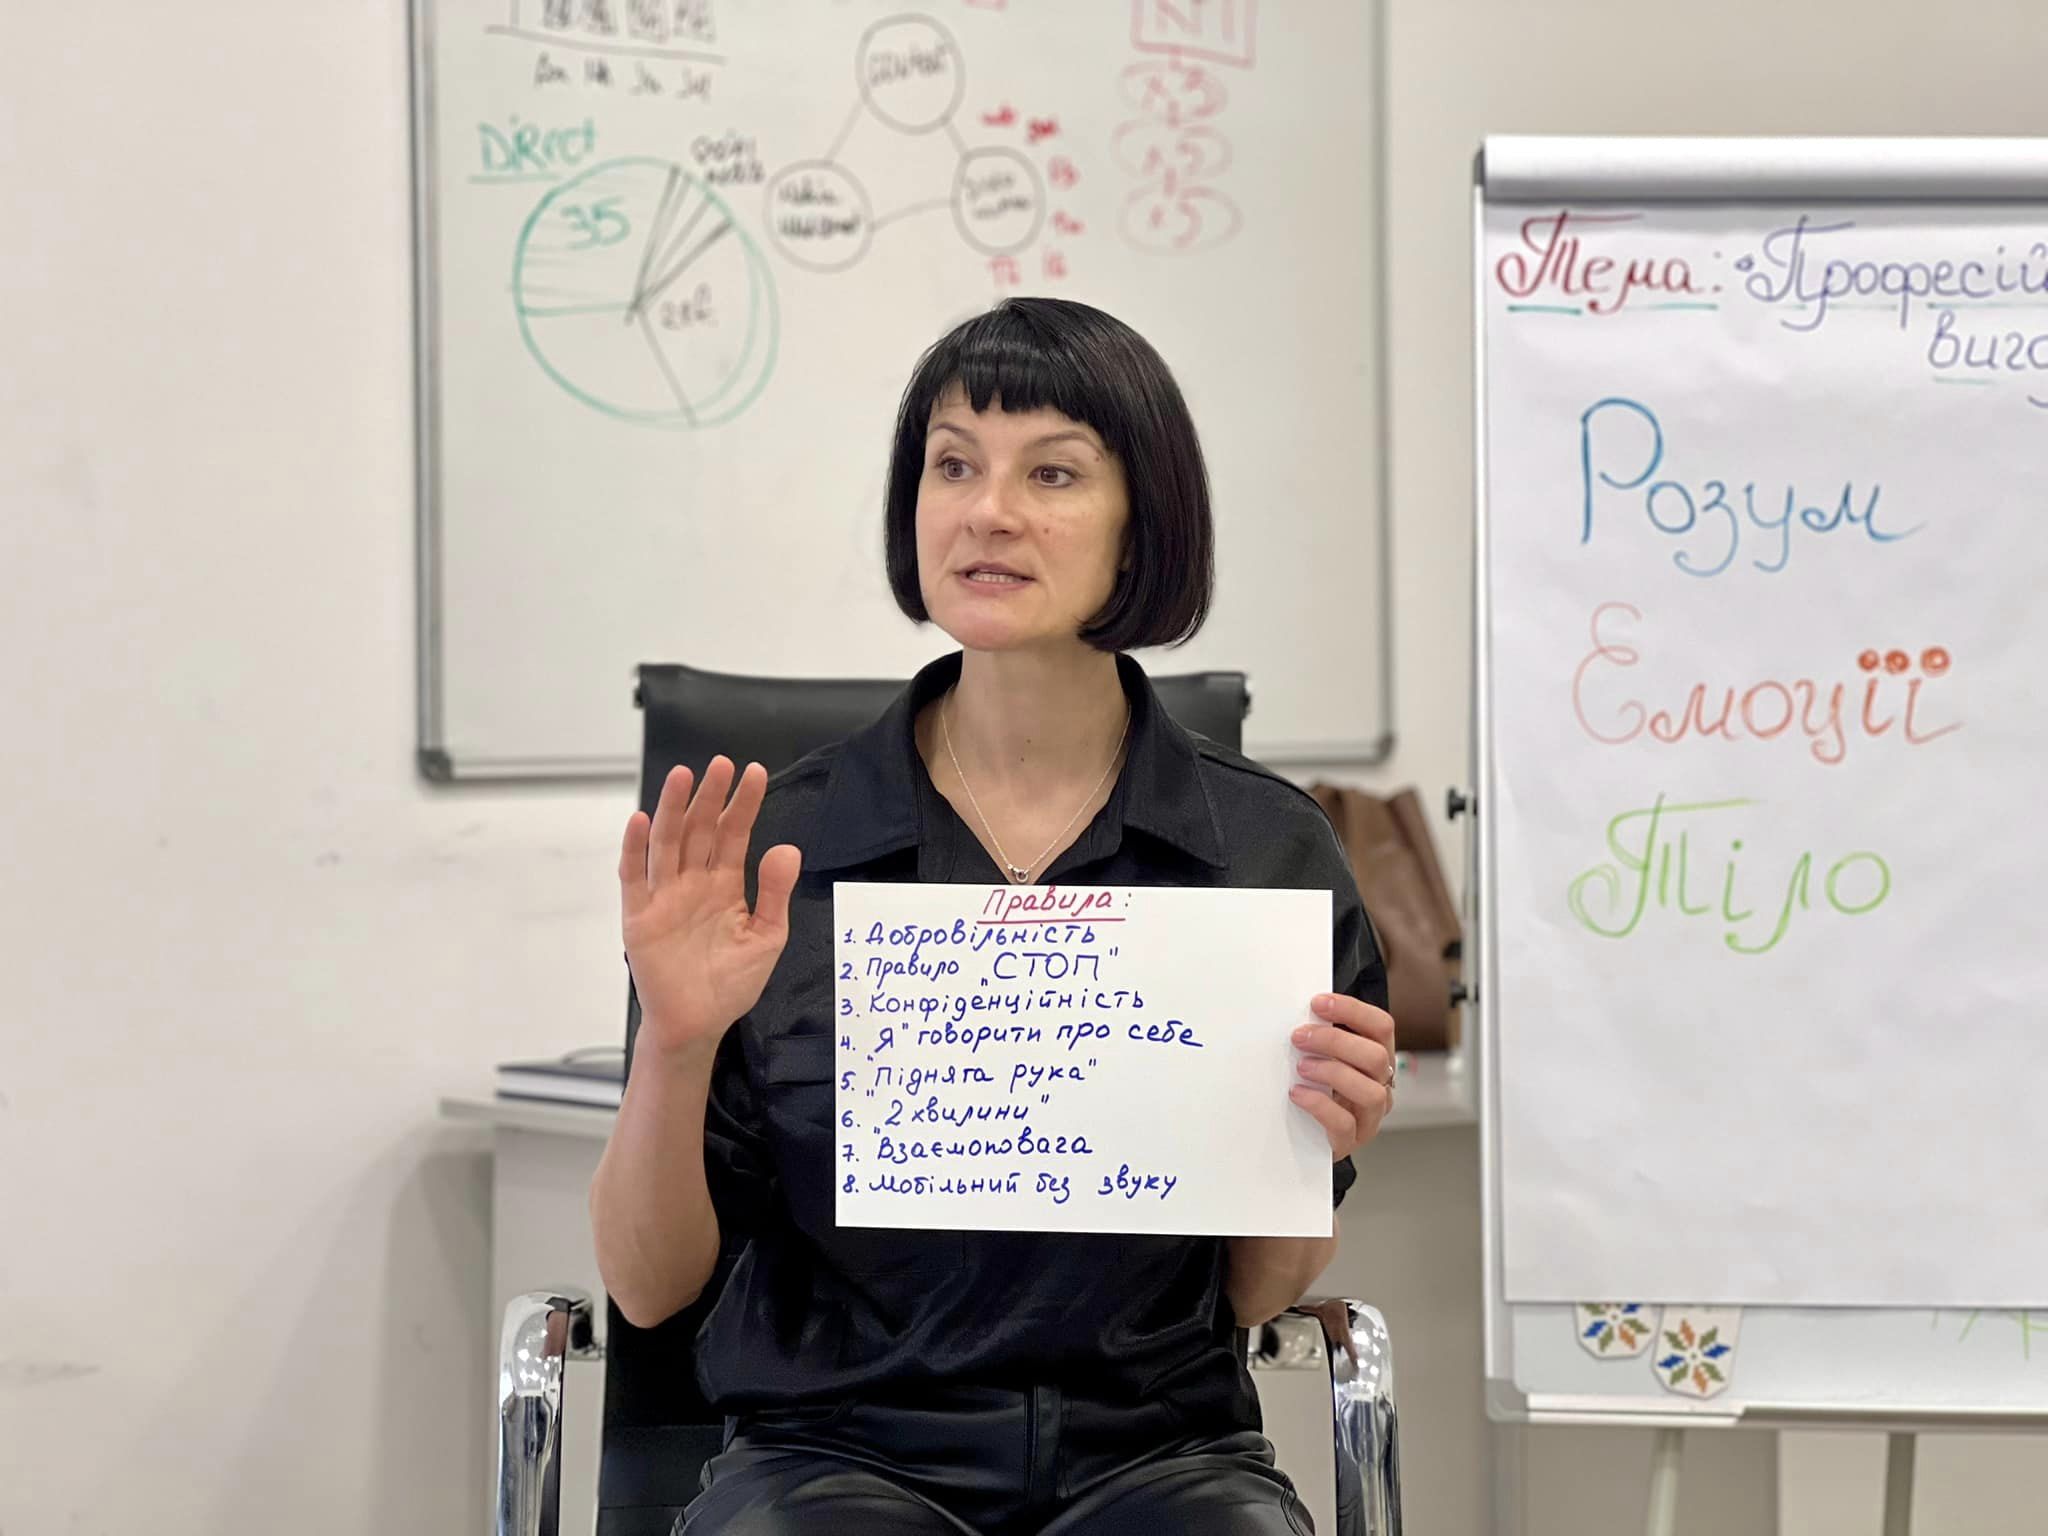 Direct
35
CONTENT
x3
x5
x5
Тема: "Професій
виго
Розум
Емоції
Тіло
Правила:
1. Добровільність
2. Правило „СТОП"
3. Конфіденційність
4. „Я" говорити про себе
5. „Піднята рука"
6. „2 хвилини"
7. Взаємоповага
8. Мобільний без звуку